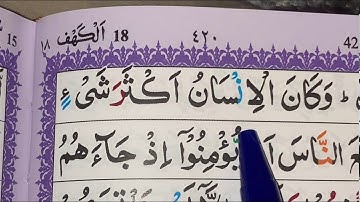 ١٨ اَلْكَهْف 18 ٤٢٠ 42
15
وَكَانَ الْاِنْسَانُ اَكْثَرَ شَیْءٍ
النَّاسَ يُّؤْمِنُوْۤا اِذْ جَآءَهُمُ